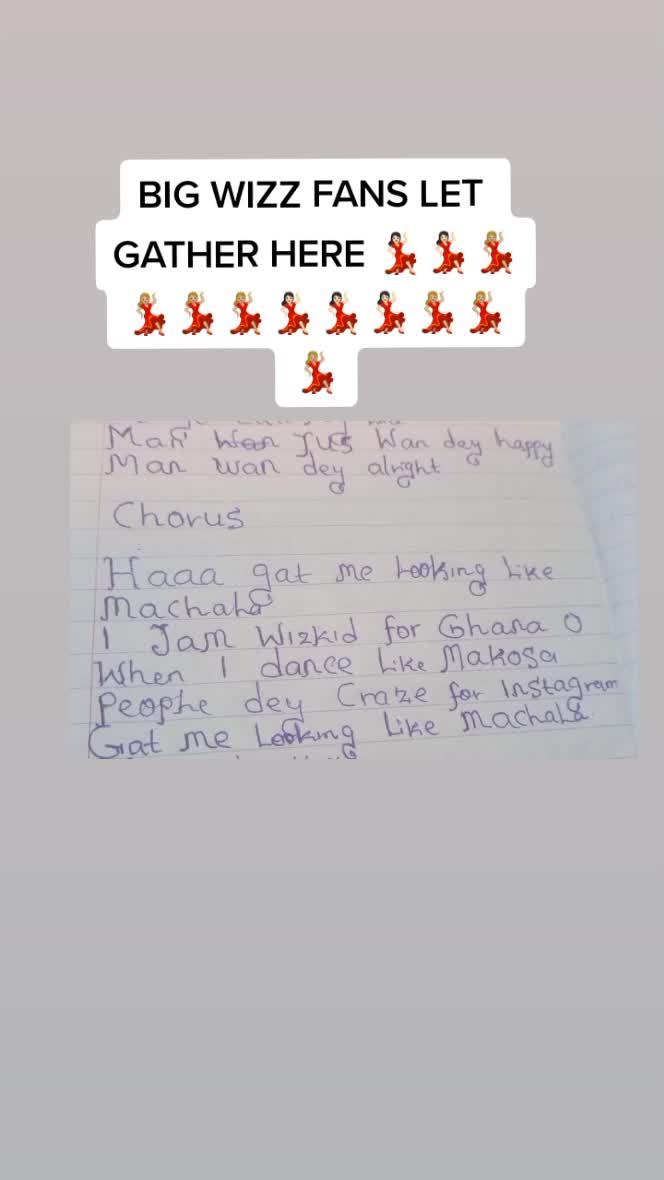 BIG WIZZ FANS LET
GATHER HERE 💃🏻💃🏻💃🏼
💃🏼💃🏼💃🏼💃🏻💃🏻💃🏻💃🏼💃🏼
💃🏼
Man Jus wan dey happy
Man wan dey alright
Chorus
Haaa gat me Looking Like
Machala
I Jam Wizkid for Ghana O
When I dance Like Makosa
Peophe dey Craze for Instagram
Gat me Looking Like Machala